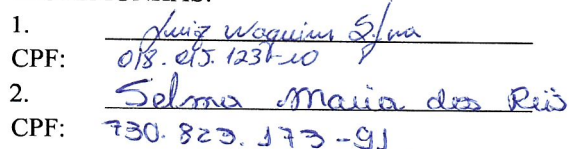 1. Luiz Waquim Silva
CPF: 018.015.123-10
2. Selma Maria dos Reis
CPF: 730.823.173-91